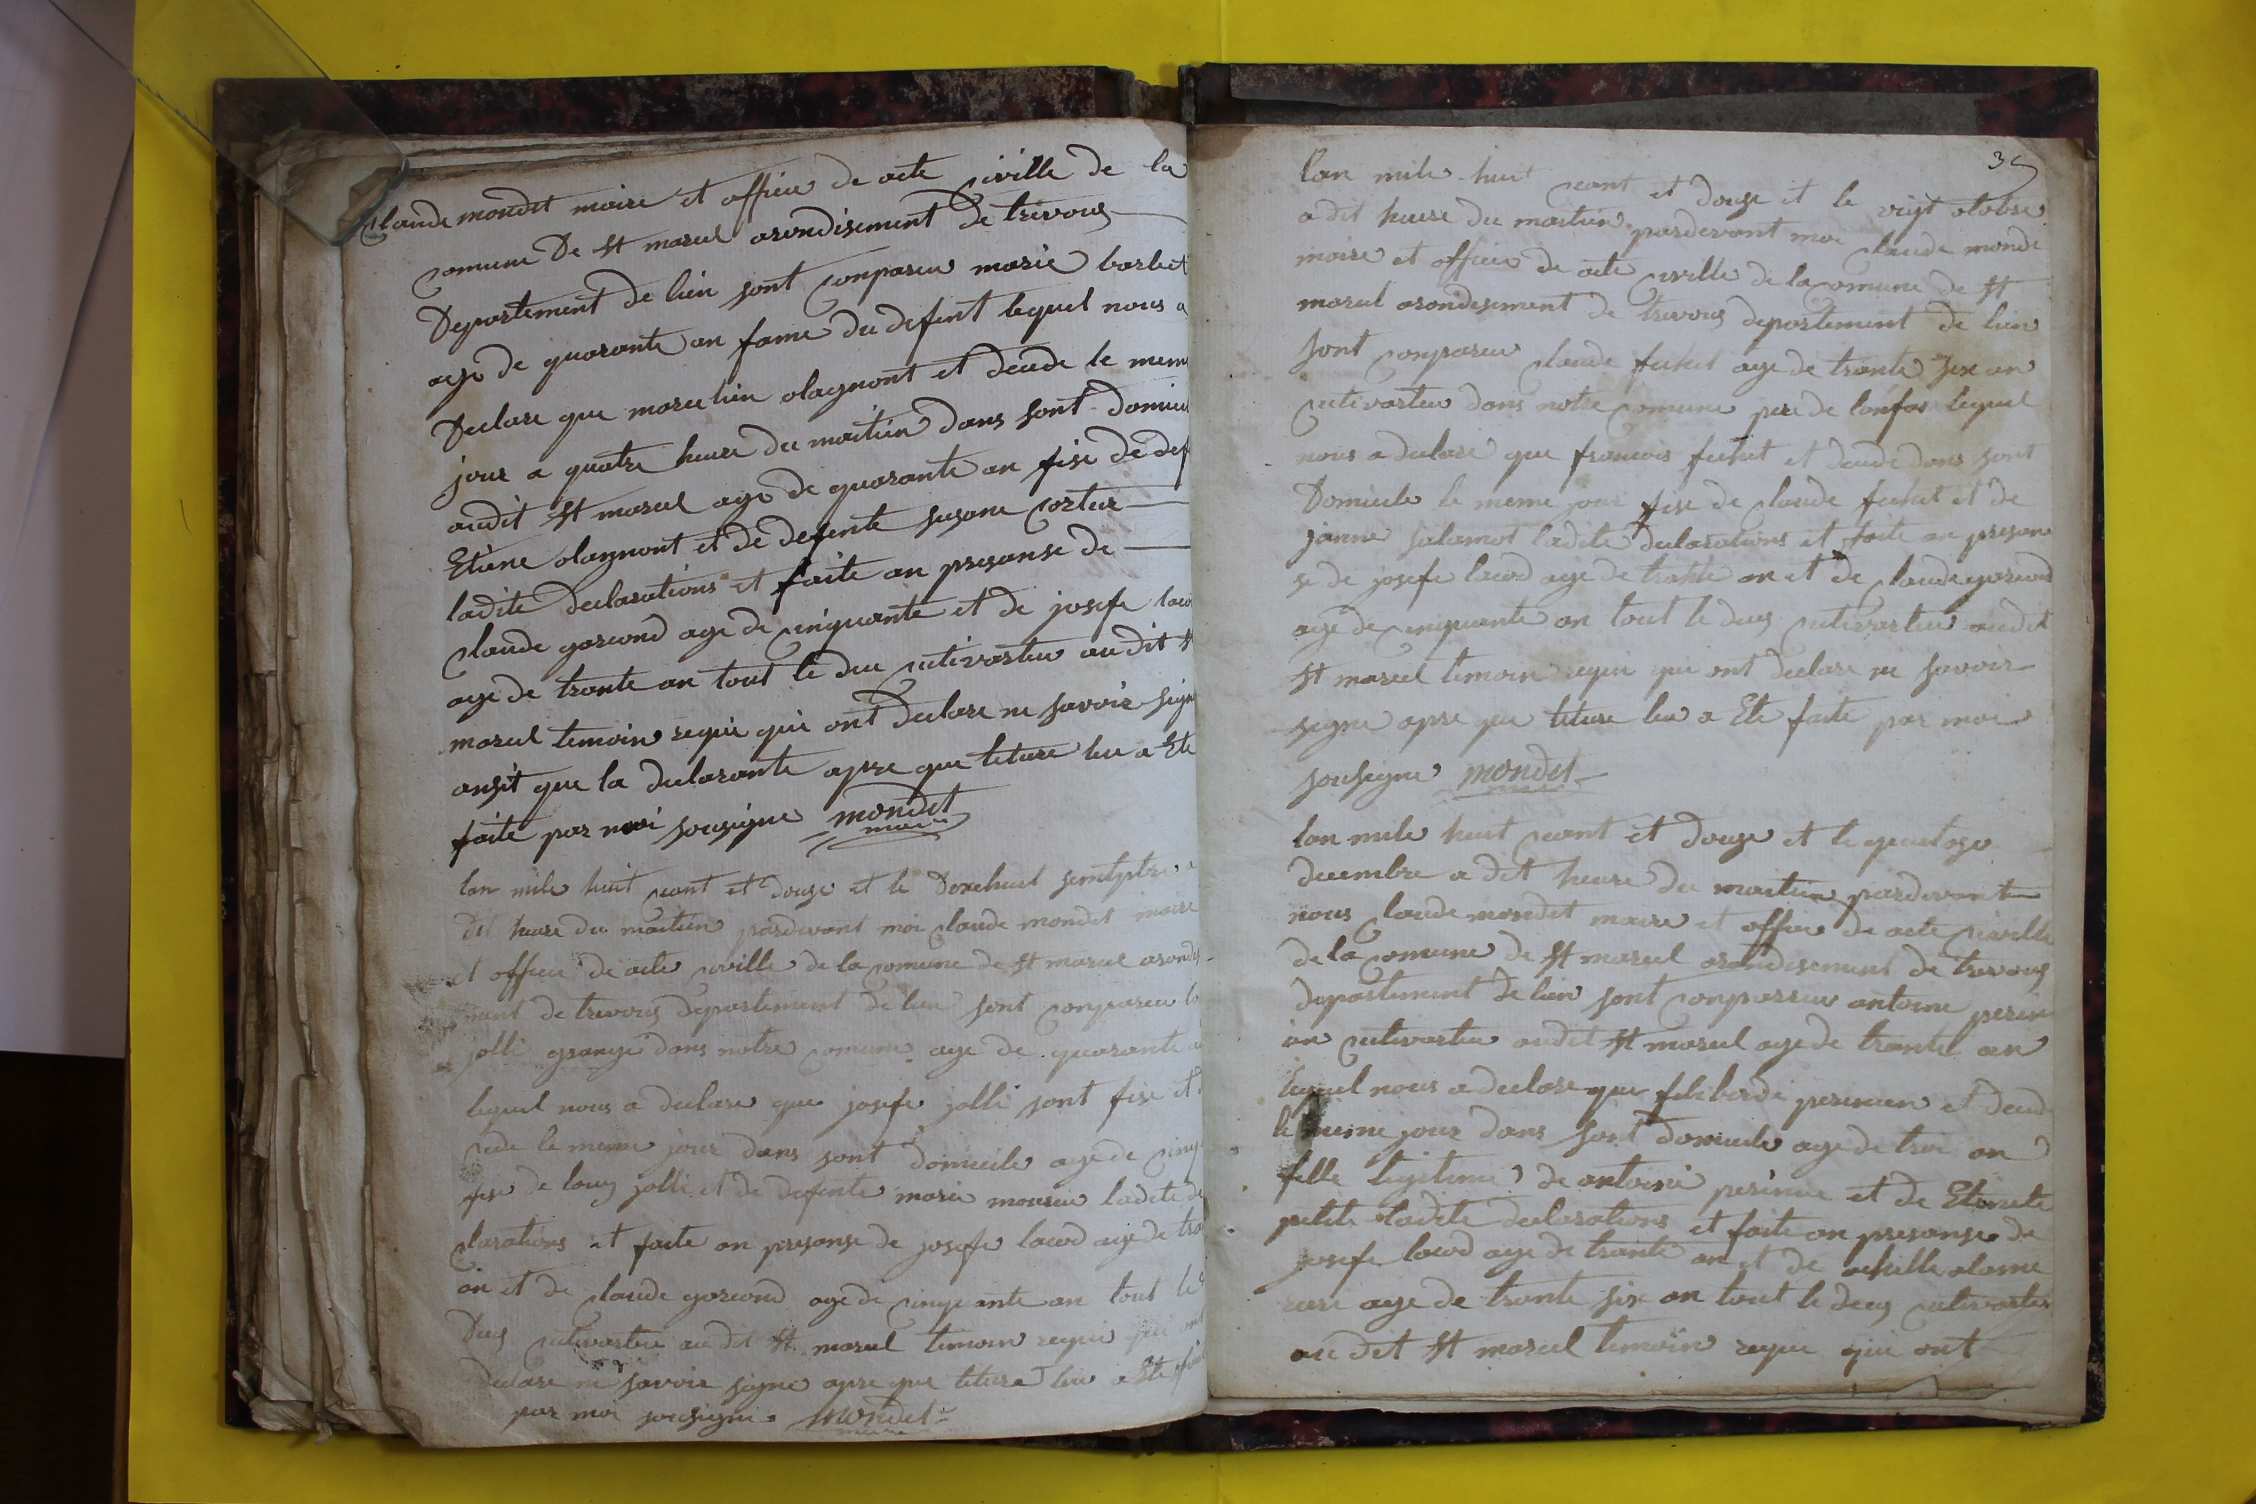 Claude mondet maire et officie de acte civille de la
comune De st marcel arondisement de trevous
Departement de lien sont conpareu marie barbet
age de quarante an fame du defent lequel nous a
Declare que marcelin olagnont et decede le meme
jour a quatre heure du maitien dans sont domici
audit st marcel age de quarante an fise de def
Etiene olagnont et de defente susane
ladite declarations et faite an presanse de
claude garcond age de cinquante et de josefe lacod
age de trante an tout le deu cutivarteu audit st
marcel temoin requi qui ont declare ne savoir signe
ansit que la declarante apre que leture leu a Ete
faite par moi sousigne mondet
maire
lan mile huit cent et douse et le Dixehuit semtptbre a
dit heure du maitien pardevant moi claude mondet maire
et officie de acte civille de la comune de st marcel arondis
ment de trevous departement de lien sont conpareu lo
jolli grange dans notre comune age de quarante a
lequel nous a declare que josefe jolli sont fise et
cede le meme jour dans sont domicile age de cinq
fise de louy jolli et de defente marie ladite de
clarations et faite an presanse de josefe lacod age de tra
an et de claude garcond age de cinquante an tout le
Deus cutivarteu au dit st marcel temoin requi qui ont
declare ne savoir signe apre que leture leu a Ete fai
par moi sousigne mondet
maire
35
lan mile huit cent et douse et le vigt otobre
a dit heure du maitien pardevant moi claude monde
maire et officie de acte civille de la comune de st
marcel arondisement de trevous departement de lien
sont conpareu claude futut age de trante six an
cutivarteu dans notre comune pere de lenfan lequel
nous a declare que francois futut et decede dans sont
Domicile le meme jour fise de claude futut et de
janne salamot ladite declarations et faite an presan
se de josefe lacod age de trante an et de claude garcond
age de cinquante an tout le deus cutivarteu audit
st marcel temoin requi qui ont declare ne savoir
signe apre que leture leu a Ete faite par moi
sousigne mondet
lan mile huit cent et douse et le quatorse
decembre a dit heure du maitien pardevant
nous claude mondet maire et officie de acte civille
de la comune de st marcel arondisement de trevous
departement de lien sont conpareu antoine perin
an cutivarteu audit st marcel age de trante an
lequel nous a declare que feliberde perinien et decede
le meme jour dans sont domicile age de troi an
fille legitime de antoine perinien et de Etienete
petite ladite declarations et faite an presanse de
josefe lacod age de trante an et de achille alame
rari age de trante six an tout le deus cutivarteu
au dit st marcel temoin requi qui ont